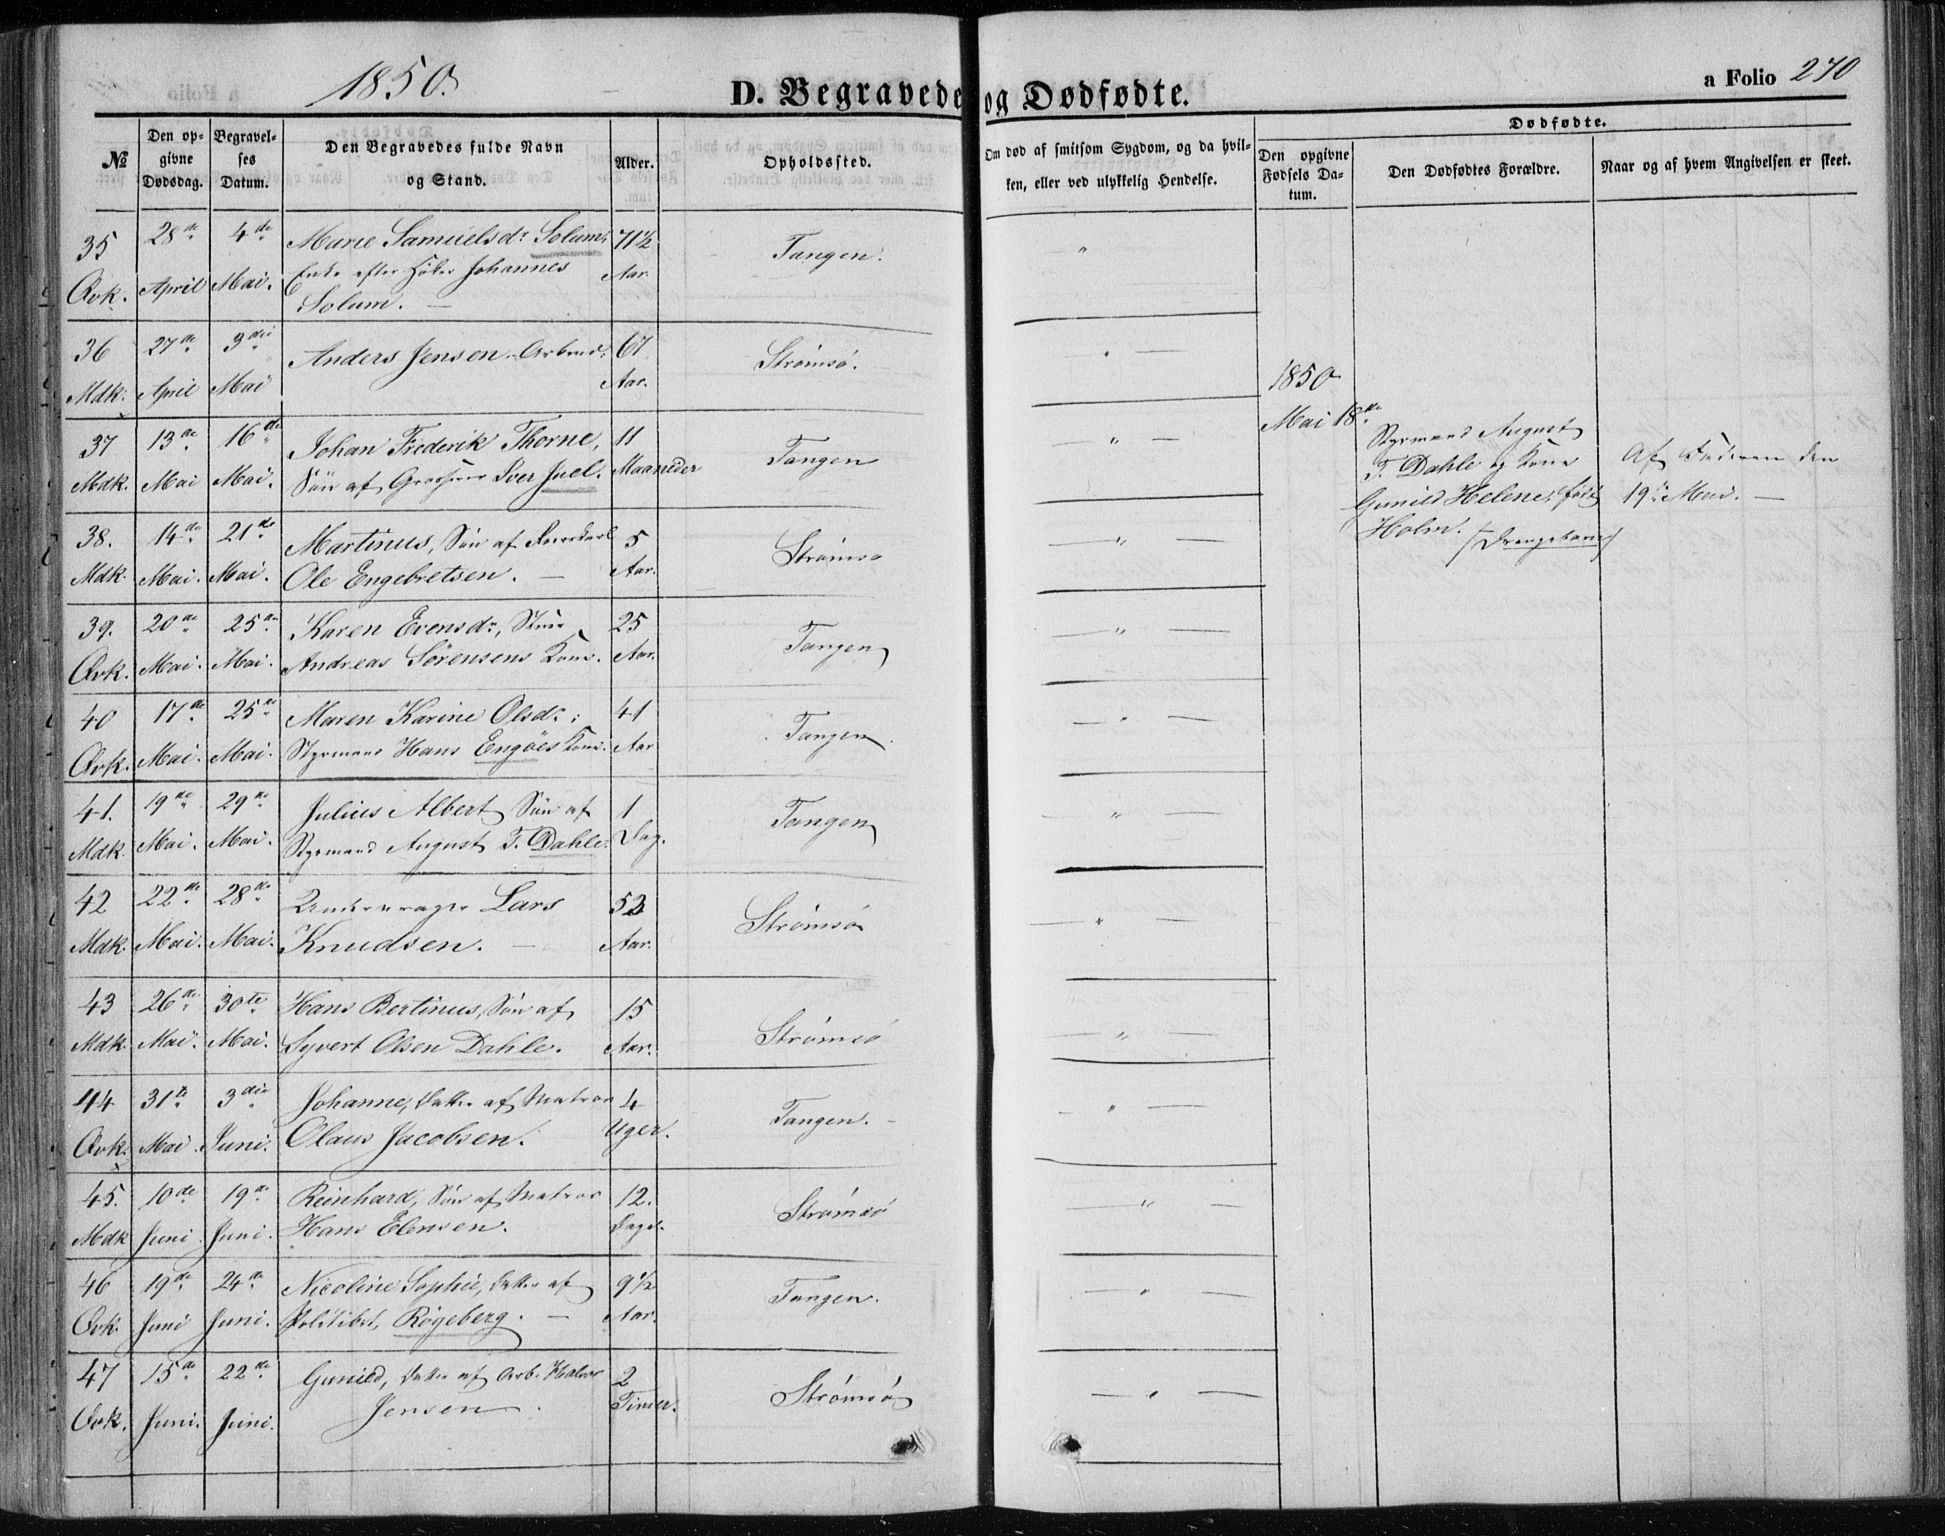 1850.
D. Begravede og Dødfødte.
a Folio 270
№
Den opgivne Dødsdag.
Begravelses Datum.
Den Begravedes fulde Navn og Stand.
Alder.
Opholdssted.
Om død af smitsom Sygdom, og da hvilken, eller ved ulykkelig Hendelse.
Dødfødte.
Den opgivne Fødsels Datum.
Den Dødfødtes Forældre.
Naar og af hvem Angivelsen er skeet.
35 28de 4de Marie Samuelsdr Solum, 71½ Tangen. "
Qvk. April Mai. Enke efter Johannes Aar.
Solum. —
36 27de 3die Anders Jensen. Arbmd. 67 Strømsö. " —
Mdk. April Mai Aar.
37 13de 16de Johan Frederik Thorne, 11 Tangen — " —
Mdk. Mai Mai. Sön af Iver Juel. Maaneder
38. 14de 21de Martinus, Sön af 5 Strømsø — " —
Mdk. Mai. Mai. Ole Engebretsen. — Aar.
39. 20de 25de Karen Evensdr, 25 Tangen — " —
Qvk. Mai. Mai. Andreas Sörensens Kone. Aar.
40 17de 25de Maren Karine Olsdr; 41 Tangen. — " —
Qvk. Mai. Mai. Styrmand Hans Engöes Kone. Aar
41. 19de 29de Julius Albert Sön af 1 Tangen — " —
Mdk. Mai. Mai. Styrmand August T. Dahle. Dag.
42 22de 28de Lars 52 Strømsø — " —
Mdk. Mai. Mai. Knudsen. — Aar.
43 26de 30te Hans Bertinus, Sön af 15 Strømsö — " —
Mdk. Mai. Mai. Syvert Olsen Dahle. Aar.
44 31te 3die Johanne, Datter af Matros 4 Tangen. — " —
Qvk. Mai. Juni. Olaus Jacobsen. Uger.
45. 10de 19de Reinhard, Sön af Matros 12. Strømsö — " —
Mdk Juni. Juni. Hans Elensen. Dage.
46 19de 24de Nicoline Sophie, Datter af 9½ Tangen. — " —
Qvk. Juni Juni. Politibet. Röyeberg. — Aar.
47 15de 22de Gunild, Datter af Arb. Halvor 2 Strømsö — " —
Qvk. Juni. Juni. Jensen. Timer.
1850
Mai 18de
Styrmand August
T. Dahle og Kone
Gunild Helene, født
Holm. (Drengebarn)
Af Faderen den
19de Mai. —